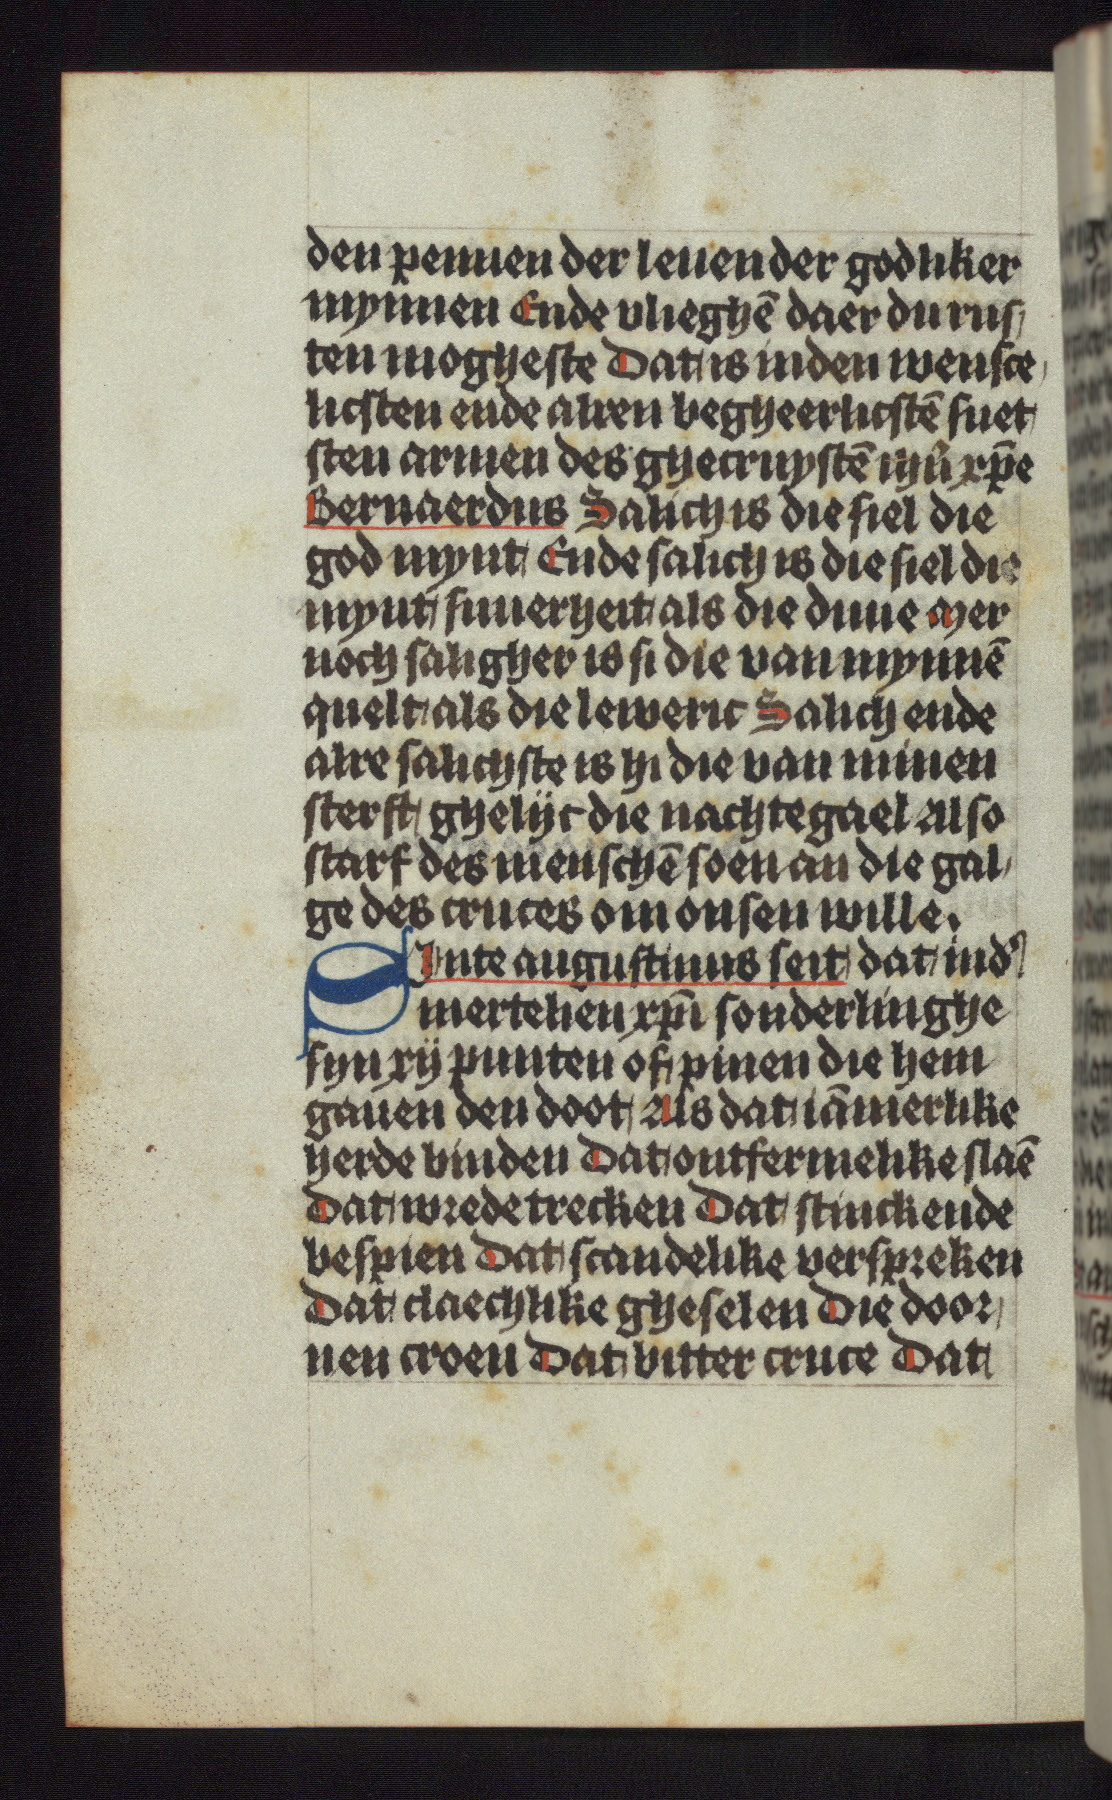 den pennen der leuender godliker
mynnen Ende vlieghē daer du rus
ten mogheste Dat is inden wensce
licsten ende alren begheerlicstē suet
sten armen des ghecruystē ihū xp̄e
Bernaerdus Salich is die siel die
god mynt Ende salich is die siel die
mynt suuerheit als die duue Mer
noch saligher is si die van mynnē
quelt als die leweric Salich ende
alre salichste is hi die van minen
sterft ghelijc die nachtegael Also
starf des menschē soen an die gal
ge des cruces om onsen wille.
SInte augustinus seit dat ind'
mertelien xp̄i sonderlinghe
syn xij punten of pinen die hem
gauen den doot Als dat iāmerlike
herde binden Dat ontfermelike slaē
Dat wrede trecken Dat stinckende
bespien Dat scandelike verspreken
Dat claechlike gheselen Die door
nen croen Dat bitter cruce Dat